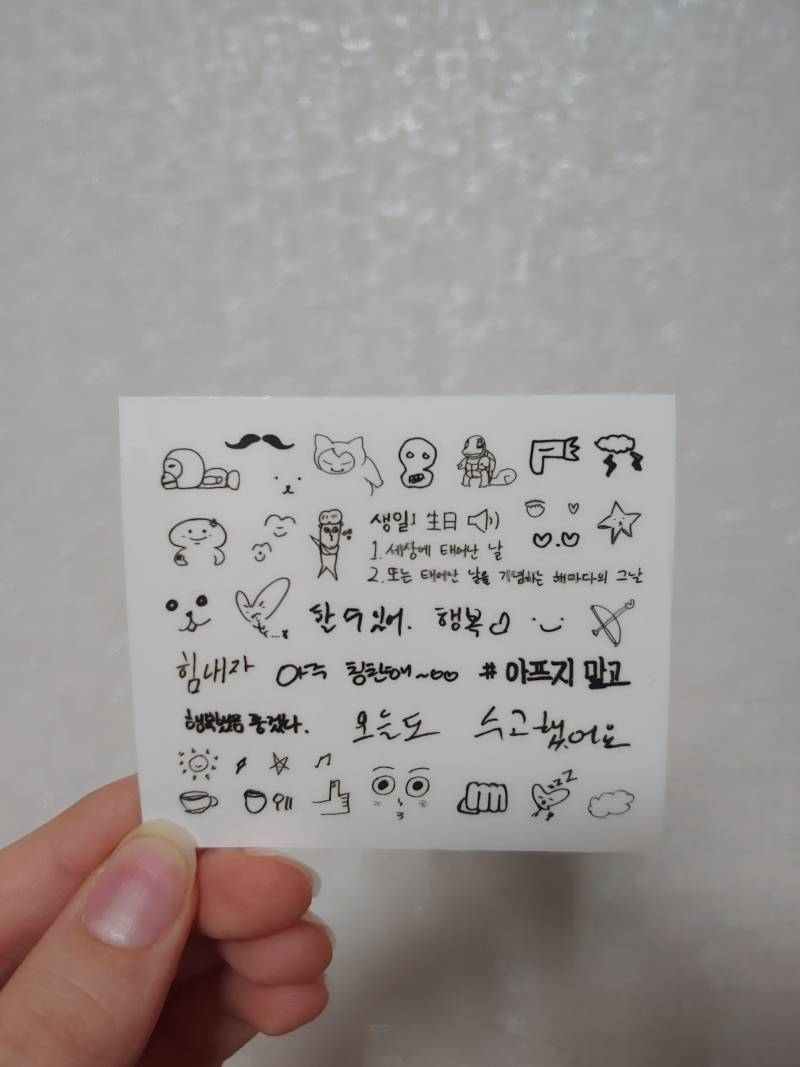 생일! 生日
1. 세상에 태어난 날
2. 또는 태어난 날을 기념하는 해마다의 그날
할 수 있어. 행복
힘내자 아주 칭찬해~
#아프지 말고
행복했음 좋겠다. 오늘도 수고했어요
zzZ